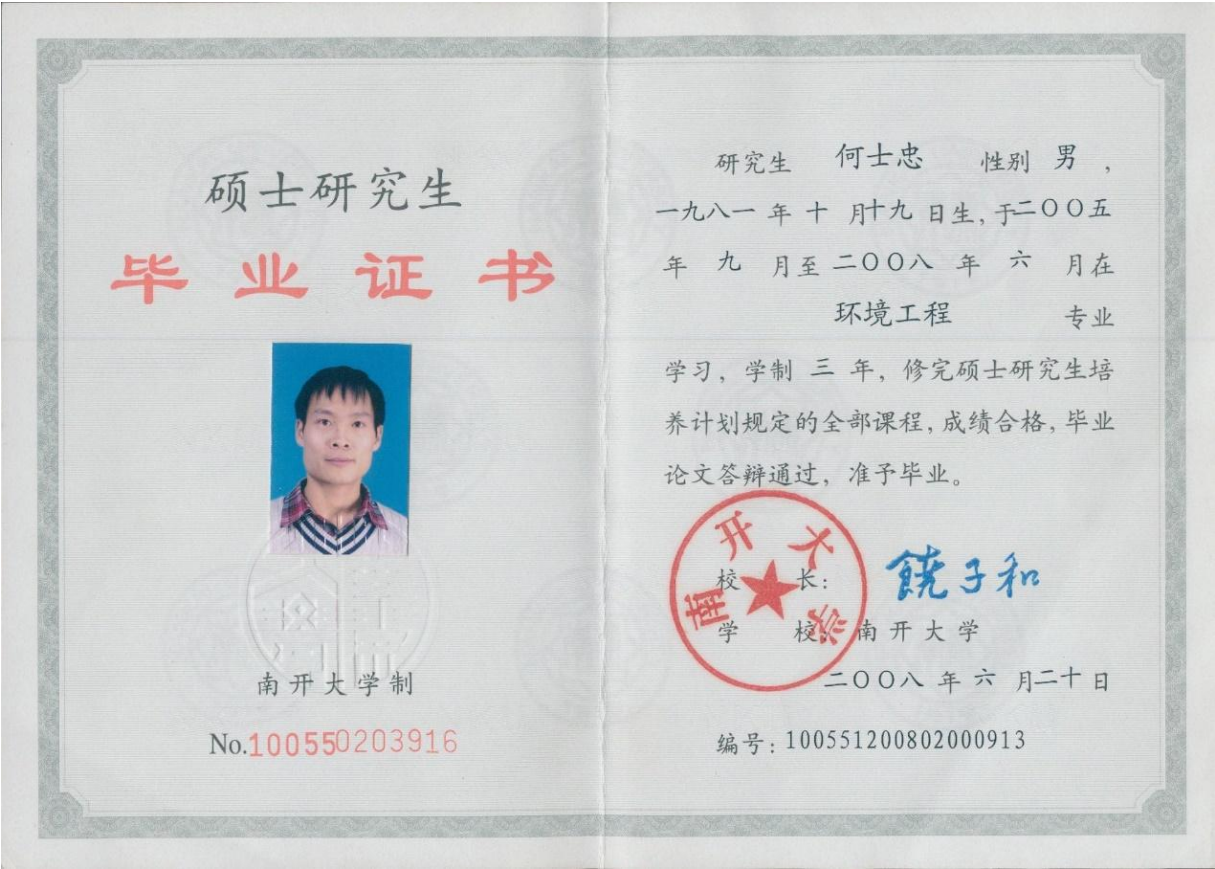 硕士研究生
毕业证书
南开大学制
No.100550203916
研究生 何士忠 性别 男，
一九八一 年 十 月十九 日生，于二〇〇五
年 九 月至 二〇〇八 年 六 月在
环境工程 专业
学习，学制 三 年，修完硕士研究生培
养计划规定的全部课程，成绩合格，毕业
论文答辩通过，准予毕业。
校 长：饶子和
学 校：南开大学
二〇〇八 年 六 月二十 日
编号：100551200802000913
南开大学